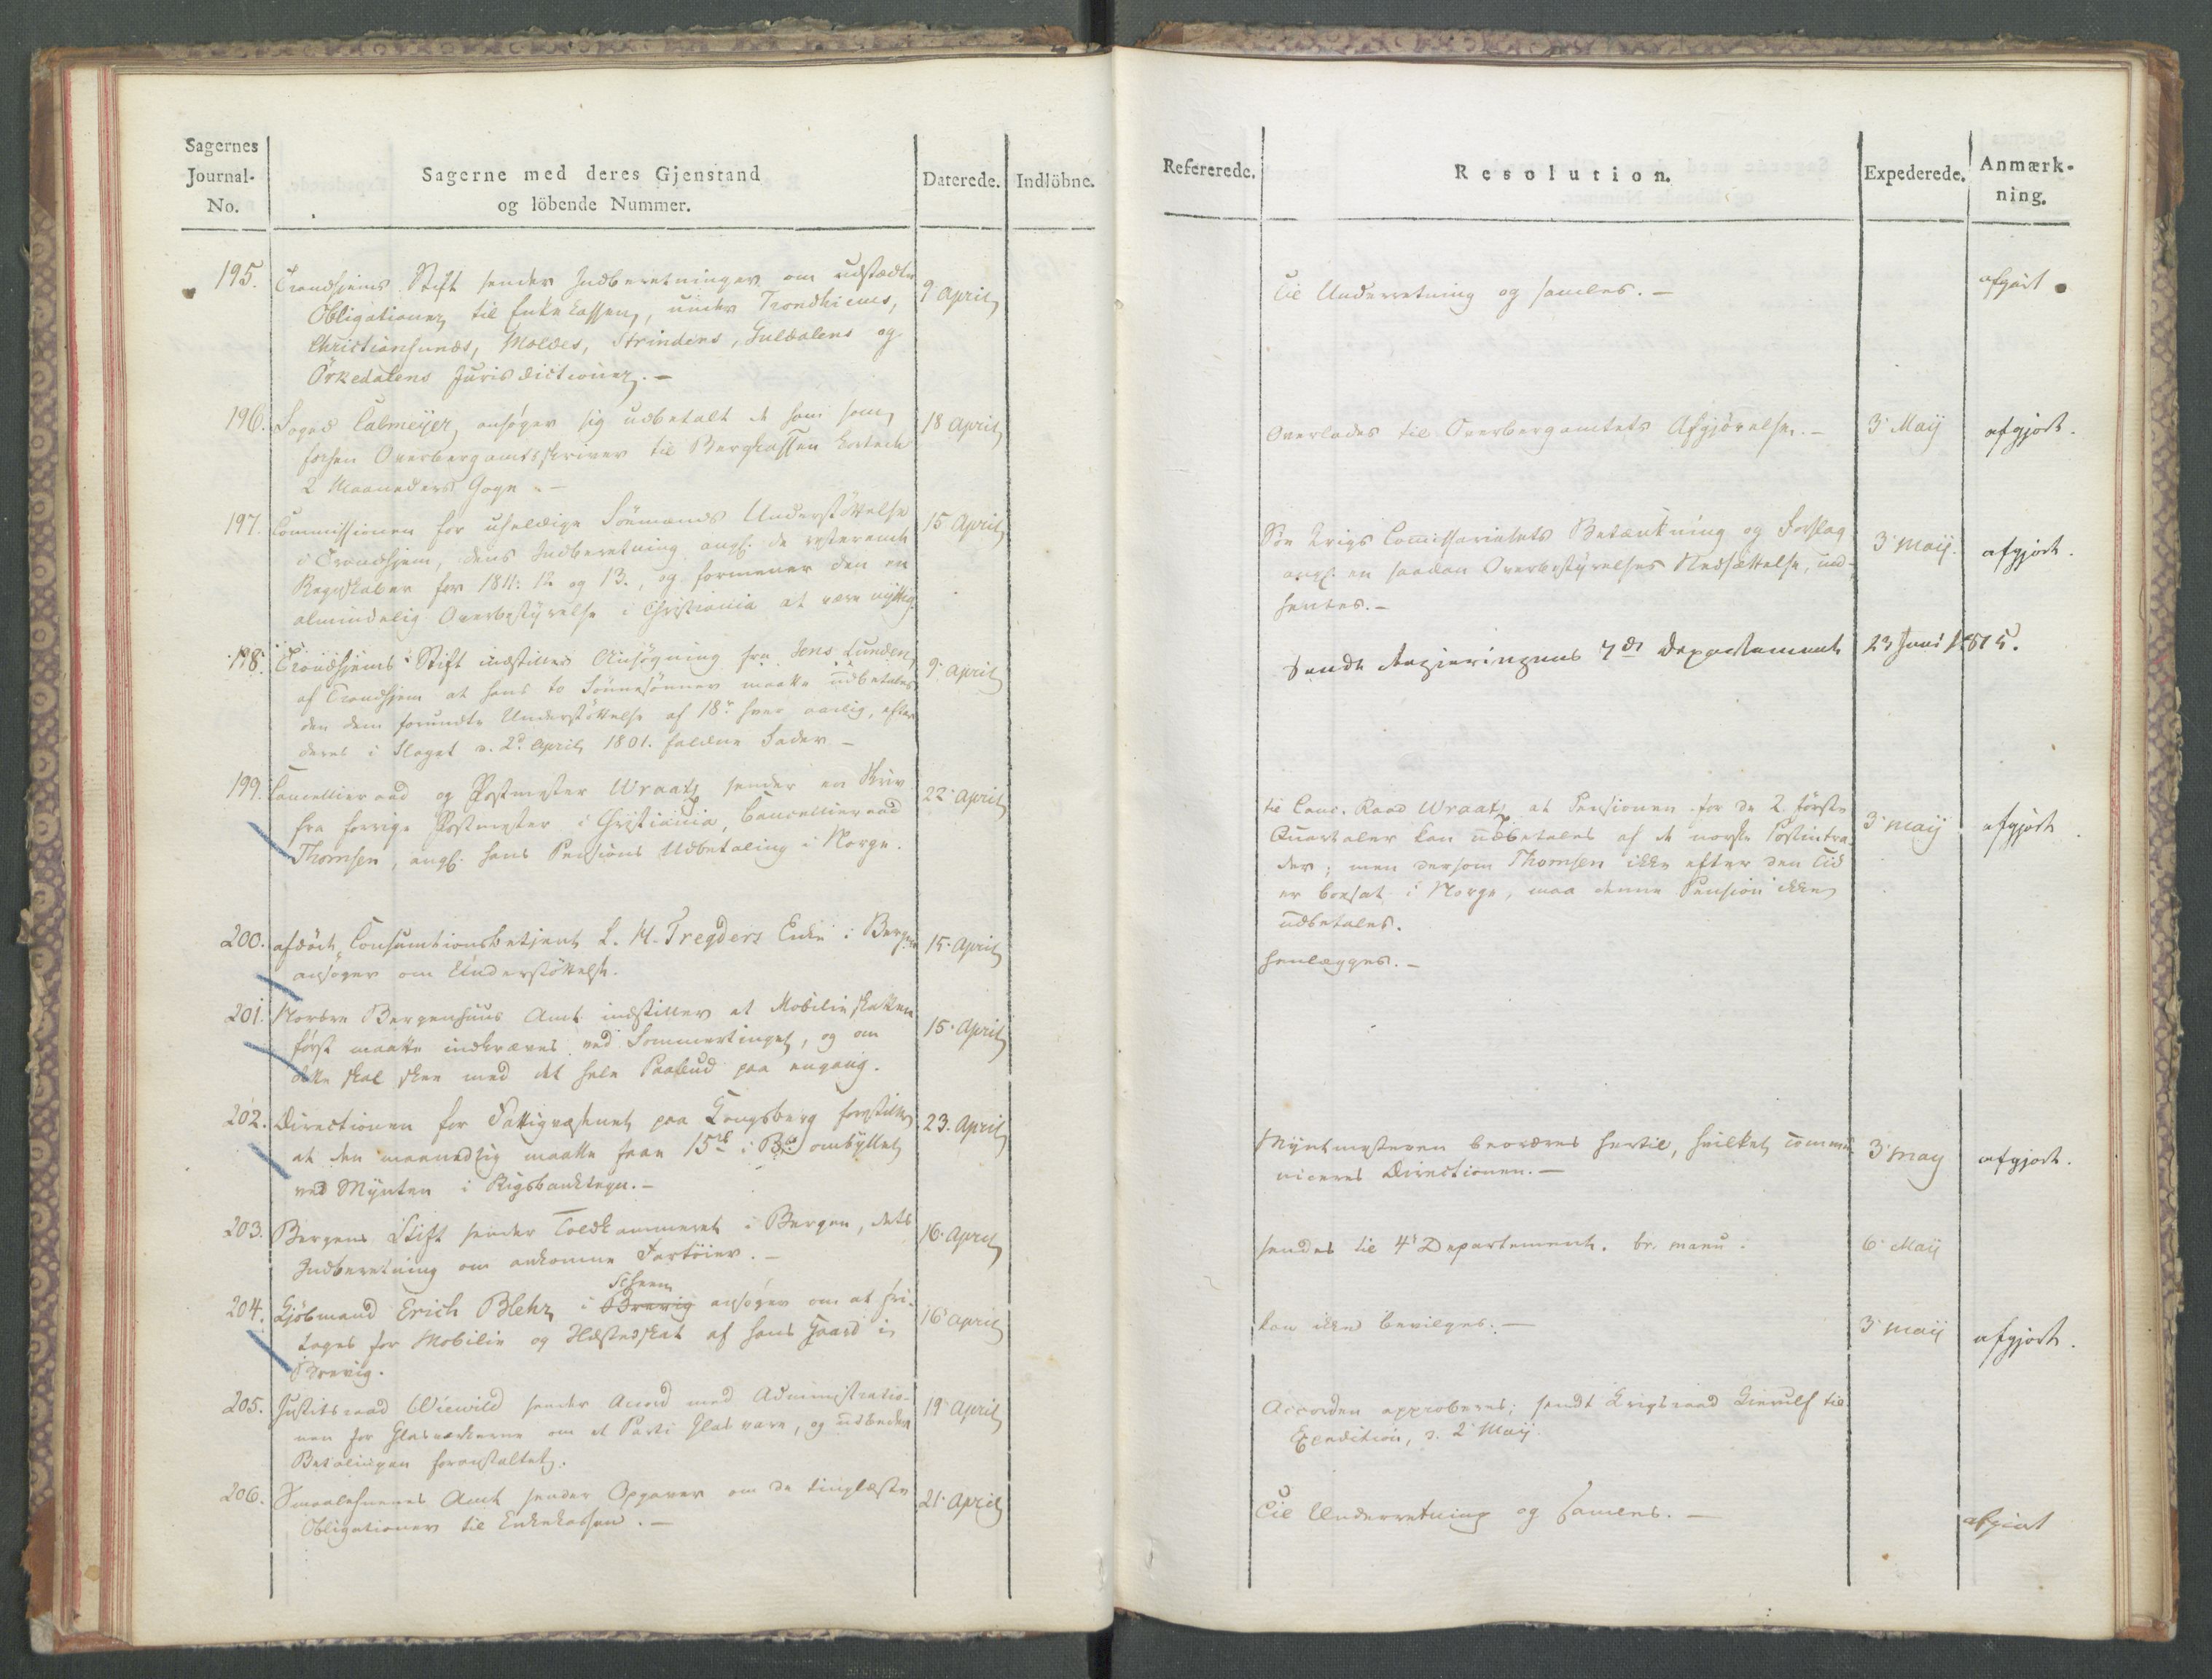 Sagernes
Journal-
No.
Sagerne med deres Gjenstand
og löbende Nummer.
Daterede.
Indlöbne.
Refererede.
Resolution.
Expederede.
Anmærk-
ning.
195. Trondhjems Stift sender Indberetninger om udstædte
Obligationer til Enkekassen, under Trondhiems,
Christiansunds, Moldes, Strindens, Guldalens og
Örkedalens Jurisdictioner. –
9 April
Til Underretning og samles. –
afgjort
196. Foged Calmeÿer, ansøger sig udbetalt de ham som
forhen Overbergamtsskriver til Bergkassen
2 Maaneders Gage. –
18 April
Overlades til Overbergamtets Afgjörelse. –
3 Maÿ
afgjort.
197. Commissionen for uheldige Söemænds Understöttelse
i Trondhjem, dens Indberetning angl. de resterende
Regnskaber for 1811. 12 og 13., og formener den en
almindelig Overbestÿrelse i Christiania at være nÿttig.
15 April
Söe Krigs Comissariatets Betænkning og Forslag
angl. en saadan Overbestÿrelses Nedsættelse, ind-
hentes. –
3 Maÿ.
afgjort.
198. Trondhjems Stift indstiller Ansögning fra Jens Lunden
af Trondhjem at hans to Sönnesönner maatte udbetales
den dem forundte Understöttelse af 18 hver aarlig, efter
deres i Slaget d. 2d April 1801. faldne Fader –
9 April
Sendt Regjeringens 7de Departement
23 Juni 1815.
199. Cancellieraad og Postmester Wraatz sender en Skriv
fra forrige Postmester i Christiania, Cancellieraad
Thomsen, angl. hans Pensions Udbetaling i Norge.
22 April
til Canc. Raad Wraatz at Pensionen for de 2 förste
Quartaler kan udbetales af de norske Postintra-
der; men dersom Thomsen ikke efter den Tid
er bosat i Norge, maa denne Pension ikke
udbetales.
3 Maÿ
afgjort
200. afdöde Consumtionsbetjent L. M. Tregders Enke i Bergen
ansöger om Understöttelse.
15 April
Henlægges. –
201. Nordre Bergenhuus Amt indstiller at Mobilieskatten
först maatte indkræves ved Sommertinget, og om
dette skal skee med det hele Paabud paa engang.
15 April
202. Directionen for Fattigvæsenet paa Kongsberg forestiller
at den maanedlig maatte faae 15 i ombÿttet
ved Mÿnten i Rigsbanktegn. –
23. April
Mÿntmesteren beordres hertil, hvilket commu-
niceres Directionen. –
3 Maÿ
afgjort.
203. Bergens Stift sender Toldkammeret i Bergen, dets
Indberetning om ankomne Fartöier. –
16 April
sendes til 4de Departement. br. manu.
6 Maÿ
204. Kjöbmand Erich Blehr i Brevig Scheen ansöger om at fri-
tages for Mobilie og Hestesskat af hans Gaard i
Brevig.
16 April
kan ikke bevilges. –
3 Maÿ
afgjort.
205. Justitsraad Wiewild sender Accord med Administratio-
nen for Glasværkerne om et Parti Glas vare, og udbeder
Betalingen foranstaltet.
19 April
Accorden approberes; sendt Krigsraad Gierulf til
Expedition, d. 2 Maÿ.
206. Smaalehnenes Amt sender Opgaver om de tinglæste
Obligationer til Enkekassen. –
21 April
Til Underretning og samles. –
afgjort